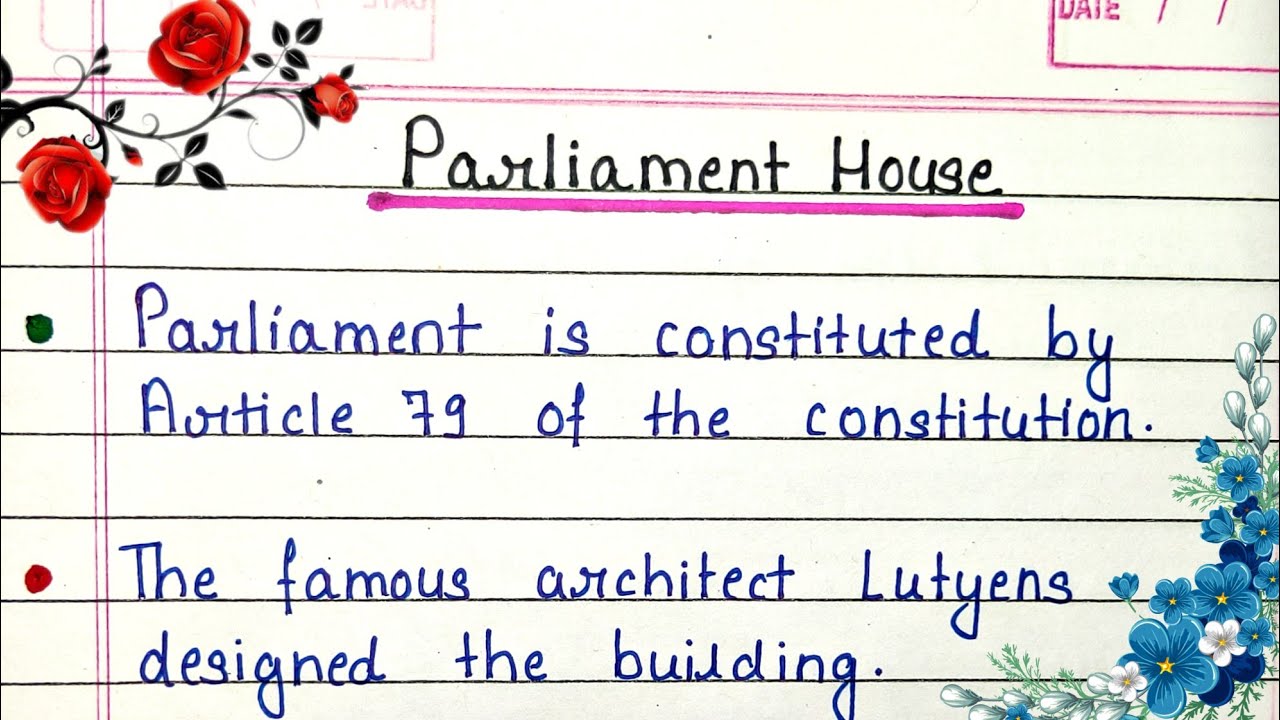 DATE / /
Parliament House
Parliament is constituted by
Article 79 of the constitution.
The famous architect Lutyens
designed the building.